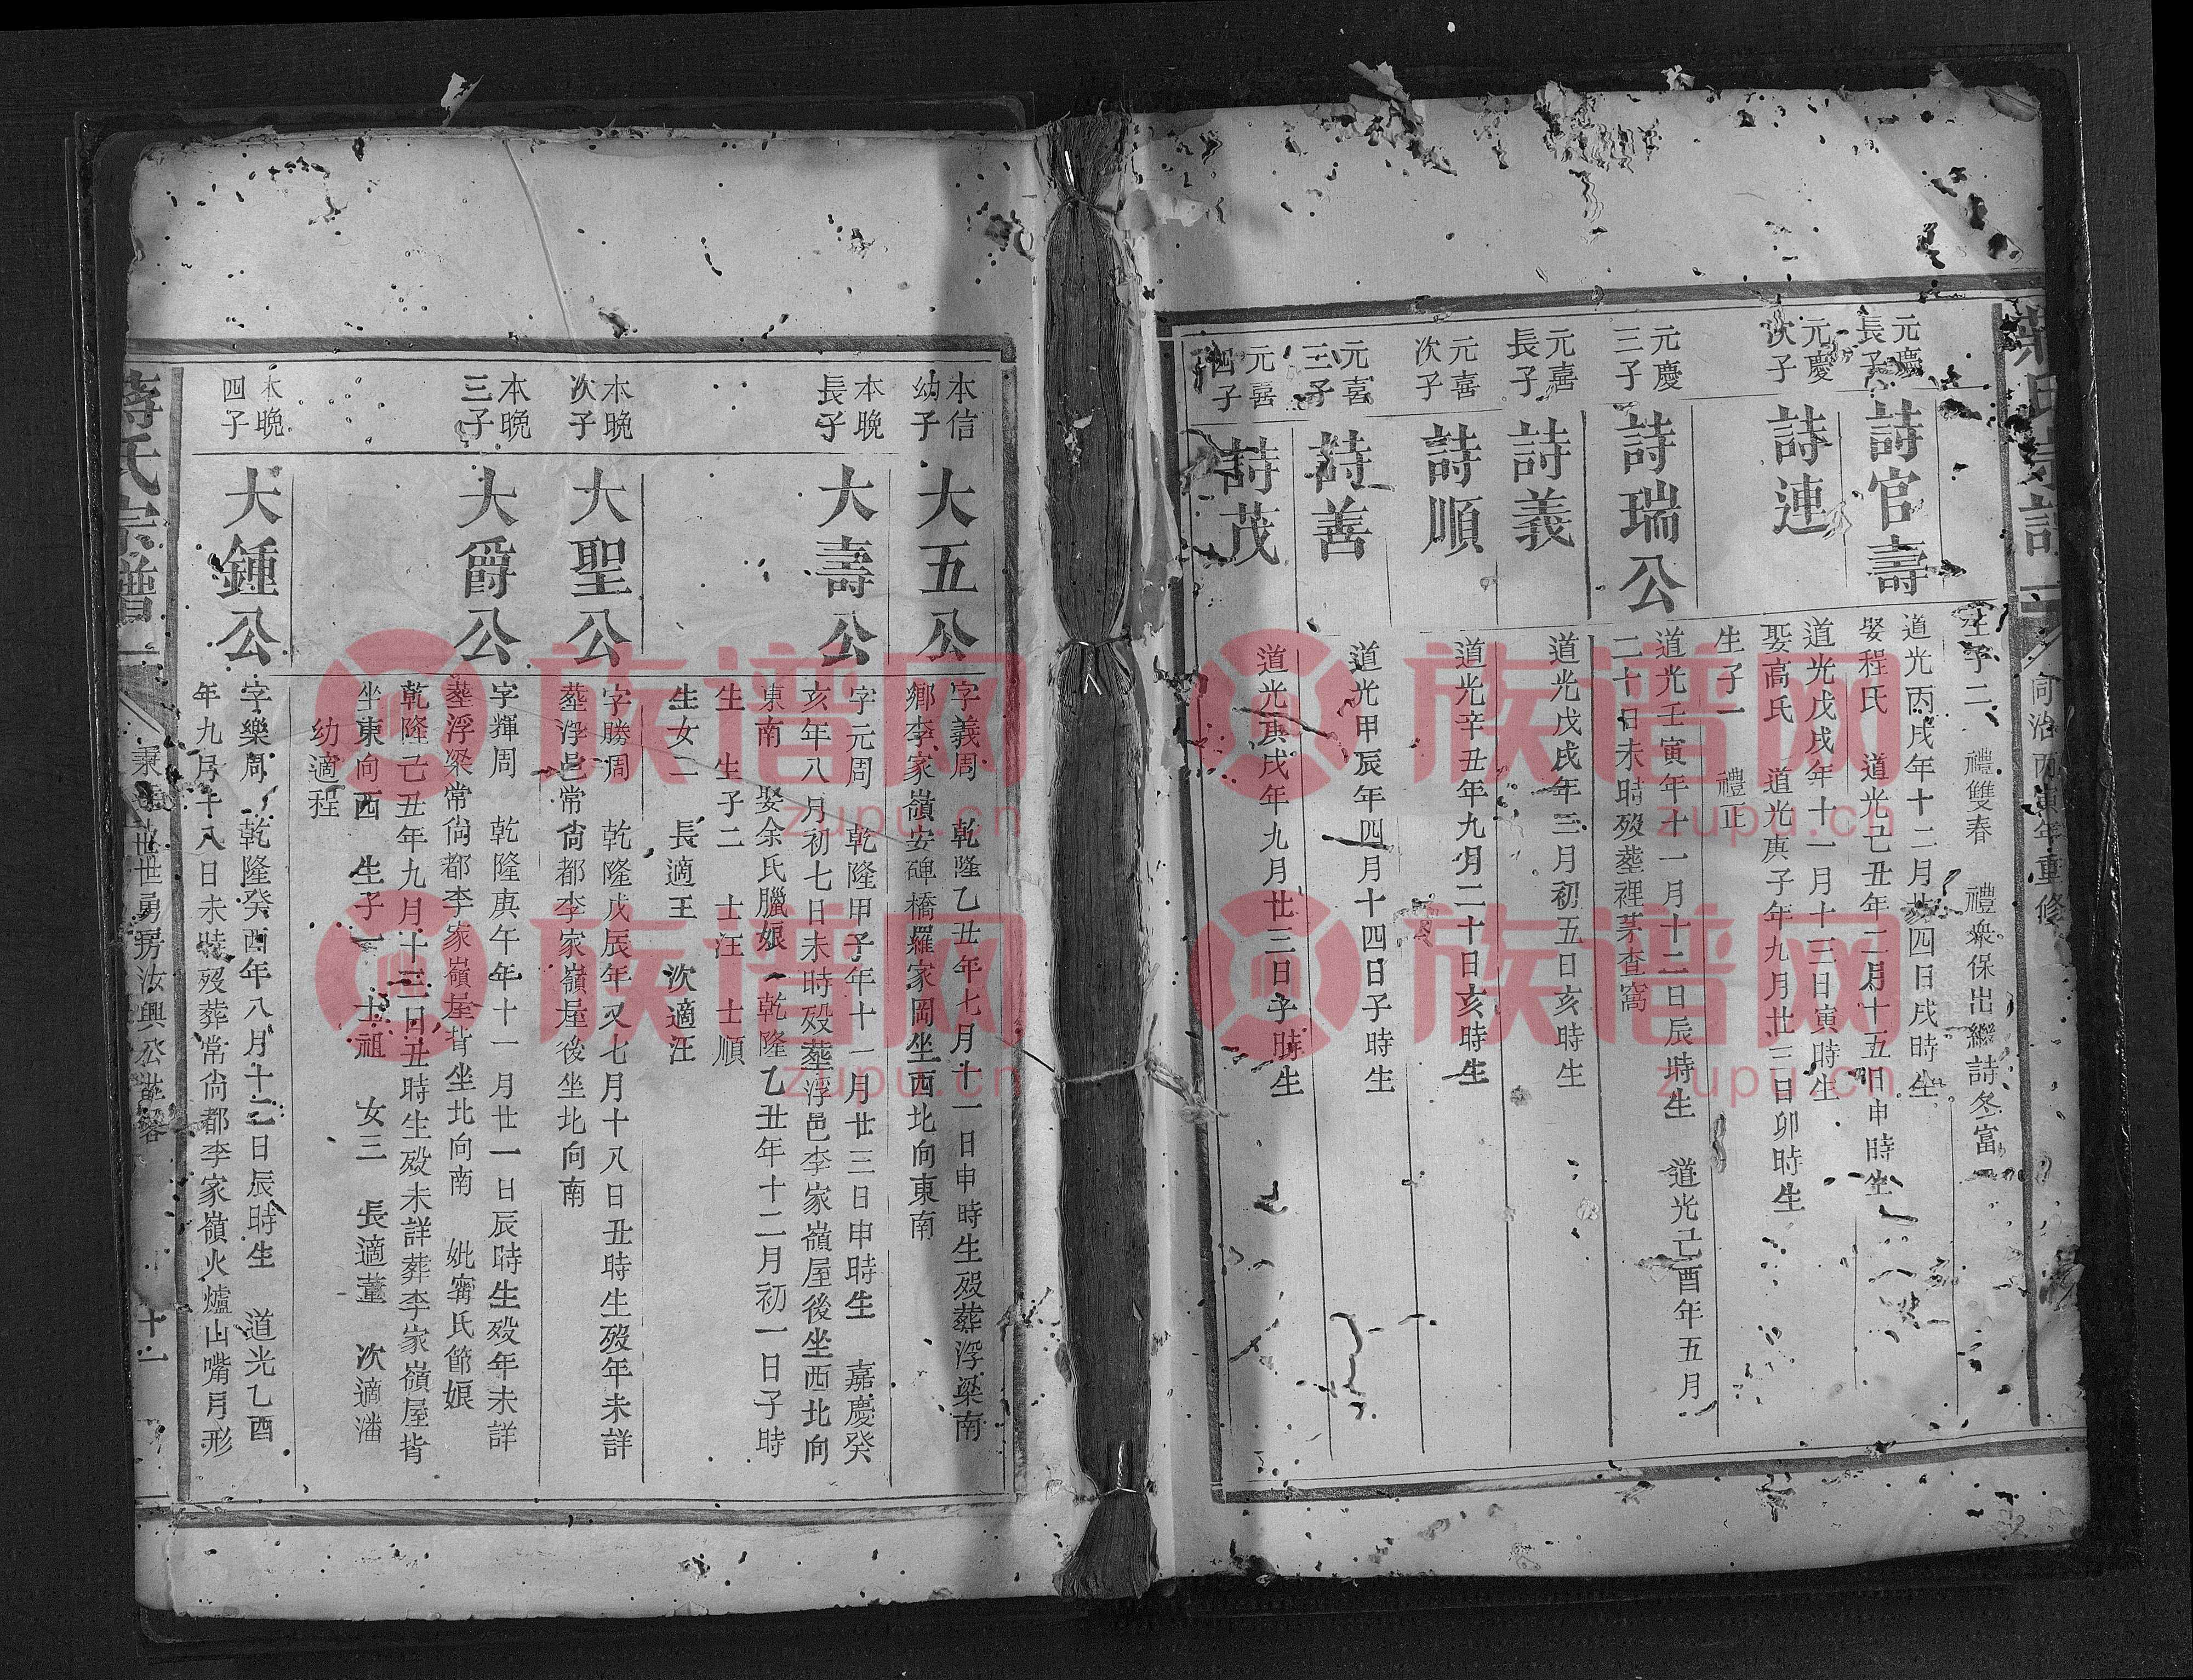 同治丙寅年重修
生子二　禮雙春　禮衆保出繼詩冬富
元慶長子
詩官壽
道光丙戌年十二月廿四日戌時生
娶程氏　道光己丑年二月十五日申時生
元慶次子
詩連
道光戊戌年十一月十三日寅時生
娶高氏　道光庚子年九月廿三日卯時生
生子一　禮正
元慶三子
詩瑞公
道光壬寅年十一月十二日辰時生　道光己酉年五月
二十日未時歿塟裡茅查窩
元喜長子
詩義
道光戊戌年三月初五日亥時生
元喜次子
詩順
道光辛丑年九月二十日亥時生
元喜三子
詩善
道光甲辰年四月十四日子時生
元喜四子
詩茂
道光庚戌年九月廿三日子時生
本信幼子
大五公
字義周　乾隆乙丑年七月十一日申時生歿葬浮梁南
鄉李家嶺安碑橋羅家岡坐西北向東南
本晚長子
大壽公
字元周　乾隆甲子年十一月廿三日申時生　嘉慶癸
亥年八月初七日未時歿塟浮邑李家嶺屋後坐西北向
東南　娶余氏臘娘　乾隆乙丑年十二月初一日子時
生　生子二　士汪　士順
生女二　長適王　次適汪
本晚次子
大聖公
字勝周　乾隆戊辰年又七月十八日丑時生歿年未詳
塟浮邑常尙都李家嶺屋後坐北向南
本晚三子
大爵公
字輝周　乾隆庚午年十一月廿一日辰時生歿年未詳
塟浮梁常尙都李家嶺屋背坐北向南　妣甯氏節娘
乾隆己丑年九月十三日丑時生歿未詳葬李家嶺屋背
坐東向西　生子一　士祖　女三　長適董　次適潘
幼適程
本晚四子
大鍾公
字樂周　乾隆癸酉年八月十二日辰時生　道光乙酉
年九月十八日未時歿葬常尙都李家嶺火爐山嘴月形
蔣氏宗譜
世世勇房汝興公
十一
族谱网
zupu.cn
族谱网
zupu.cn
族谱网
zupu.cn
族谱网
zupu.cn